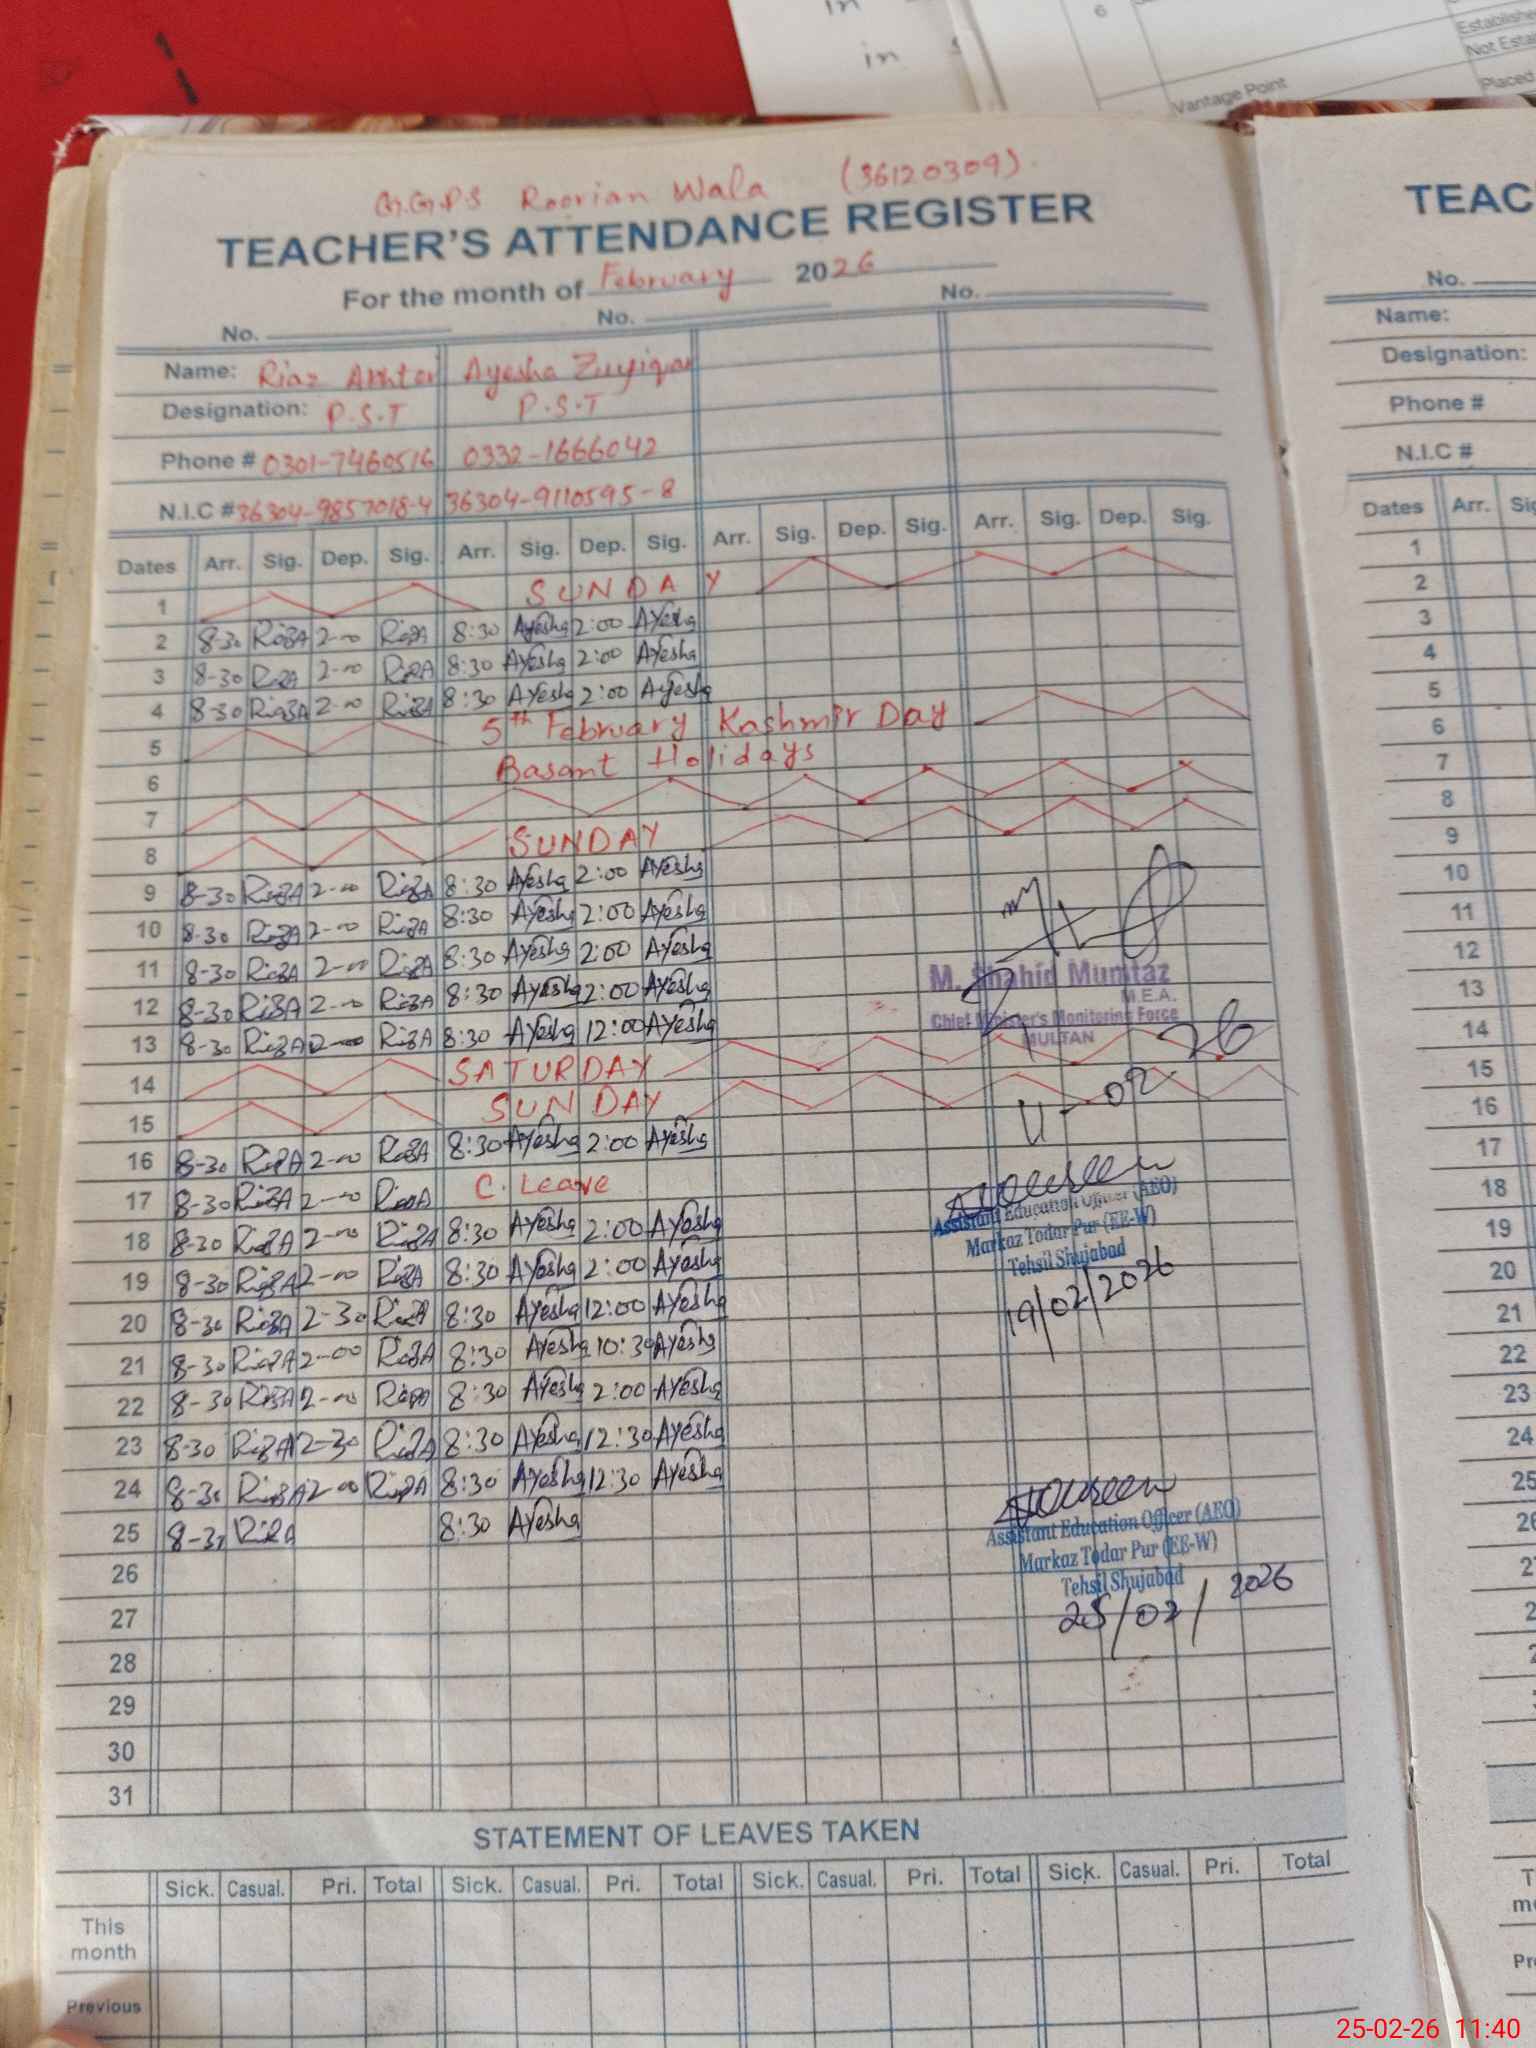 in
in
6
Establishe
Not Esta
Vantage Point
Placed
G.G.P.S Roorian Wala (36120309).
TEACHER'S ATTENDANCE REGISTER
For the month of February 2026
No. No. No.
Name: Riaz Akhter Ayesha Zulfiqar
Designation: P.S.T P.S.T
Phone # 0301-7460516 0332-1666042
N.I.C # 36304-9857018-4 36304-9110595-8
Dates Arr. Sig. Dep. Sig. Arr. Sig. Dep. Sig. Arr. Sig. Dep. Sig. Arr. Sig. Dep. Sig.
1 SUNDAY
2 8-30 RizA 2-00 RizA 8:30 Ayesha 2:00 Ayesha
3 8-30 RizA 2-00 RizA 8:30 Ayesha 2:00 Ayesha
4 8-30 RizA 2-00 RizA 8:30 Ayesha 2:00 Ayesha
5 5th February Kashmir Day
6 Basant Holidays
7
8 SUNDAY
9 8-30 RizA 2-00 RizA 8:30 Ayesha 2:00 Ayesha
10 8-30 RizA 2-00 RizA 8:30 Ayesha 2:00 Ayesha
11 8-30 RizA 2-00 RizA 8:30 Ayesha 2:00 Ayesha
12 8-30 RizA 2-00 RizA 8:30 Ayesha 2:00 Ayesha
13 8-30 RizA RizA 8:30 Ayesha 12:00 Ayesha
14 SATURDAY
15 SUNDAY
16 8-30 RizA 2-00 RizA 8:30 Ayesha 2:00 Ayesha
17 8-30 RizA 2-00 RizA C. Leave
18 8-30 RizA 2-00 RizA 8:30 Ayesha 2:00 Ayesha
19 8-30 RizA 2-00 RizA 8:30 Ayesha 2:00 Ayesha
20 8-30 RizA 2-30 RizA 8:30 Ayesha 12:00 Ayesha
21 8-30 RizA 2-00 RizA 8:30 Ayesha 10:30 Ayesha
22 8-30 RizA 2-00 RizA 8:30 Ayesha 2:00 Ayesha
23 8-30 RizA 2-30 RizA 8:30 Ayesha 12:30 Ayesha
24 8-30 RizA 2-00 RizA 8:30 Ayesha 12:30 Ayesha
25 8-30 RizA 8:30 Ayesha
26
27
28
29
30
31
M. Shahid Mumtaz
M.E.A.
Chief Minister's Monitoring Force
MULTAN
11-02-26
Assistant Education Officer (AEO)
Markaz Todar Pur (EE-W)
Tehsil Shujabad
19/02/2026
Assistant Education Officer (AEO)
Markaz Todar Pur (EE-W)
Tehsil Shujabad
25/02/2026
STATEMENT OF LEAVES TAKEN
Sick. Casual. Pri. Total Sick. Casual. Pri. Total Sick. Casual. Pri. Total Sick. Casual. Pri. Total
This month
Previous
TEAC
No.
Name:
Designation:
Phone #
N.I.C #
Dates Arr. Sig
1
2
3
4
5
6
7
8
9
10
11
12
13
14
15
16
17
18
19
20
21
22
23
24
25
26
25-02-26 11:40